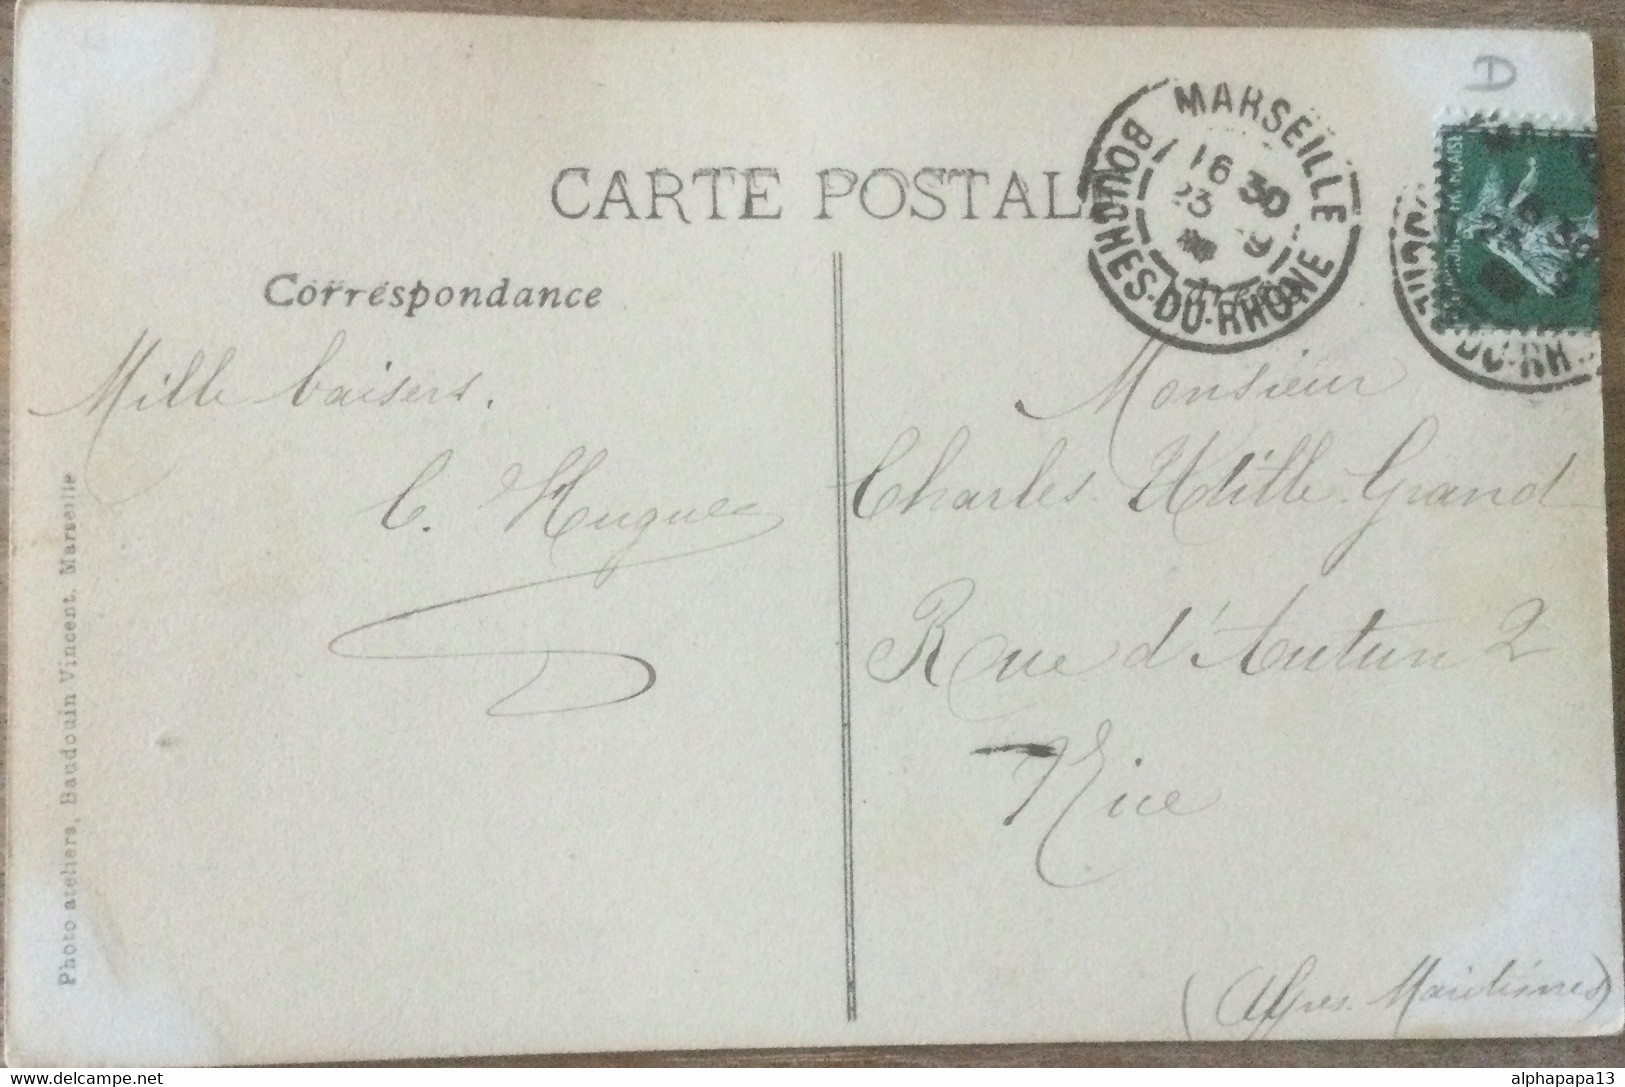 CARTE POSTALE
MARSEILLE
16 30
23 9
BOUCHES-DU-RHONE
DU-RH
Correspondance
Mille baisers.
C. Hugues
Monsieur
Charles Utille Grand
Rue d'Autun 2
Nice
(Alpes Maritimes)
Photo ateliers, Baudouin Vincent. Marseille
www.delcampe.net
alphapapa13